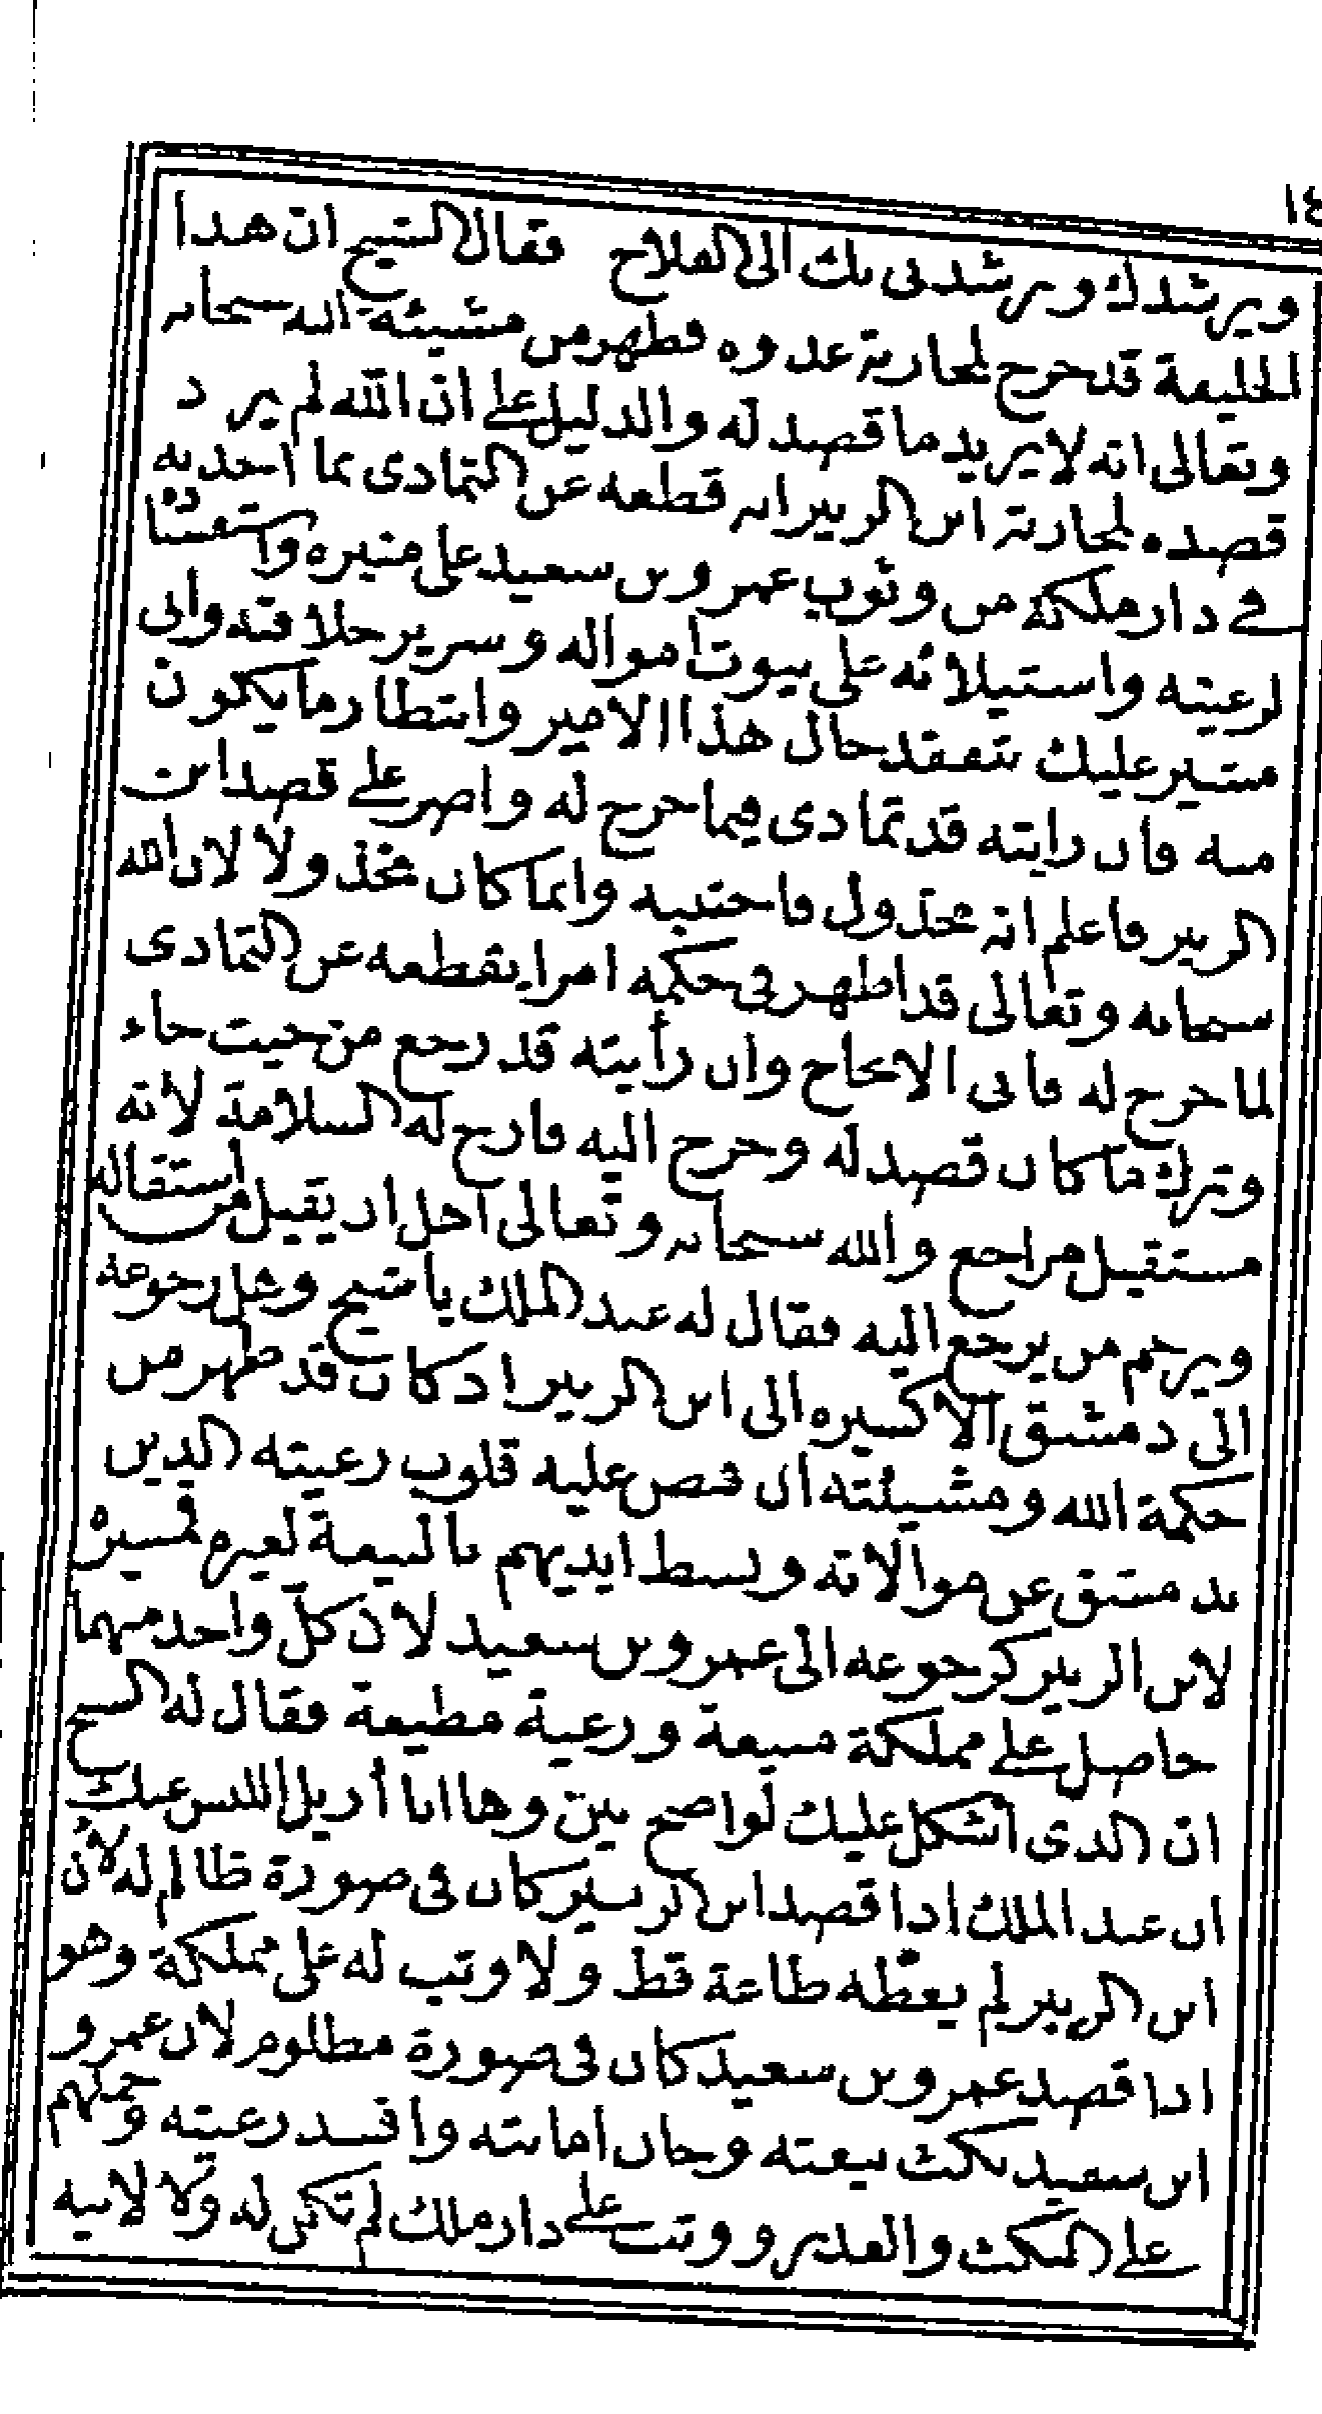 ١٤
ويرشدك ويرشدنى بك الى الفلاح فقال الشيخ ان هذا
الخليفة قد خرج لمحاربة عدوه فظهر من مشيئة الله سبحانه
وتعالى انه لا يريد ما قصد له والدليل على ان الله لم يرد
قصده لمحاربة ابن الزبير انه قطعه عن التمادى بما احدثه
فى دار مملكته من وثوب عمرو بن سعيد على منبره واستفساده
لرعيته واستيلائه على بيوت امواله وسرير خلافته وانى
مشير عليك بتفقد حال هذا الامير وانتظار ما يكون
منه فان رايته قد تمادى فيما خرج له واصر على قصد ابن
الزبير فاعلم انه مخذول فاجتنبه وانما كان مخذولا لان الله
سبحانه وتعالى قد اظهر فى حكمه امرا يقطعه عن التمادى
لما خرج له فابى الا لجاج وان رأيته قد رجع من حيث جاء
وترك ما كان قصد له وخرج اليه فارج له السلامة لانه
مستقيل مراجع والله سبحانه وتعالى اهل ان يقيل من استقاله
ويرحم من يرجع اليه فقال له عبد الملك يا شيخ وهل رجوعه
الى دمشق الا كسيره الى ابن الزبير اذ كان قد ظهر من
حكمة الله ومشيئته ان قبض عليه قلوب رعيته الذين
بدمشق عن موالاته وبسط ايديهم بالبيعة لغيره فمسيره
لابن الزبير كرجوعه الى عمرو بن سعيد لان كل واحد منهما
حاصل على مملكة منيعة ورعية مطيعة فقال له الشيخ
ان الذى اشكل عليك لواضح بين وها انا أزيل اللبس عنك
ان عبد الملك اذا قصد ابن الزبير كان فى صورة ظالم له لأن
ابن الزبير لم يعطه طاعة قط ولا وثب له على مملكة وهو
اذا قصد عمرو بن سعيد كان فى صورة مظلوم لان عمرو
ابن سعيد نكث بيعته وخان امانته وافسد رعيته وحملهم
على النكث والغدر ووثب على دار ملك لم تكن له ولا لابيه